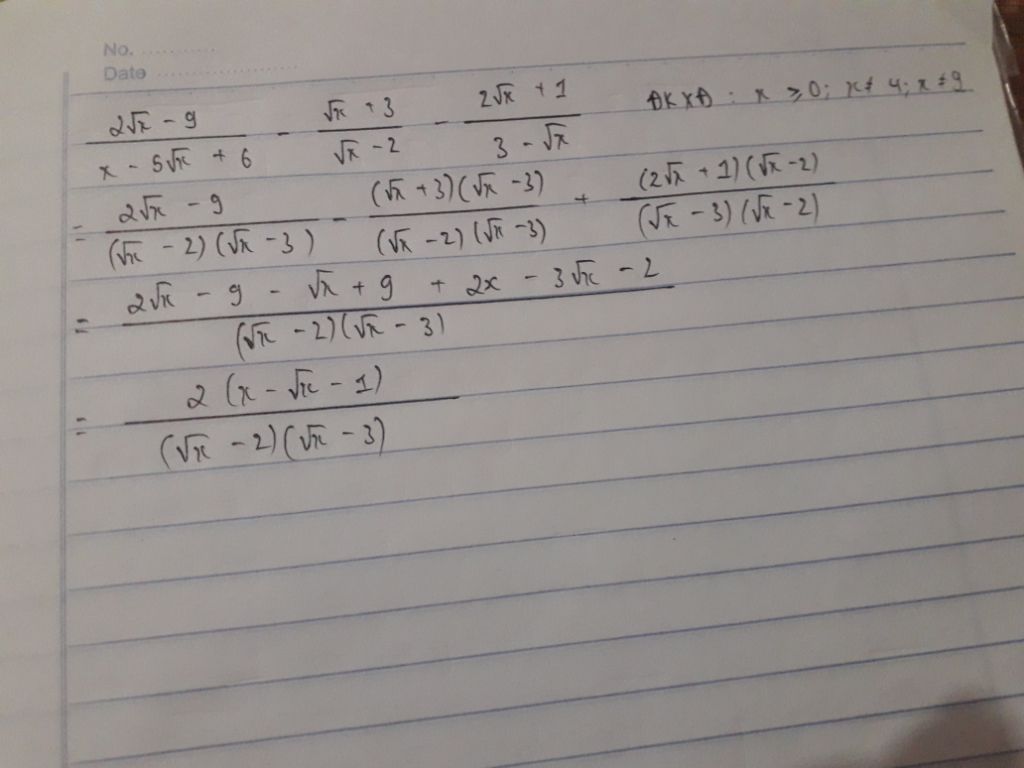 No. ............
Date ........................
(2√x - 9)/(x - 5√x + 6) - (√x + 3)/(√x - 2) - (2√x + 1)/(3 - √x) ĐKXĐ : x ≥ 0; x ≠ 4; x ≠ 9
= (2√x - 9)/((√x - 2)(√x - 3)) - ((√x + 3)(√x - 3))/((√x - 2)(√x - 3)) + ((2√x + 1)(√x - 2))/((√x - 3)(√x - 2))
= (2√x - 9 - √x + 9 + 2x - 3√x - 2)/((√x - 2)(√x - 3))
= (2 (x - √x - 1))/((√x - 2)(√x - 3))